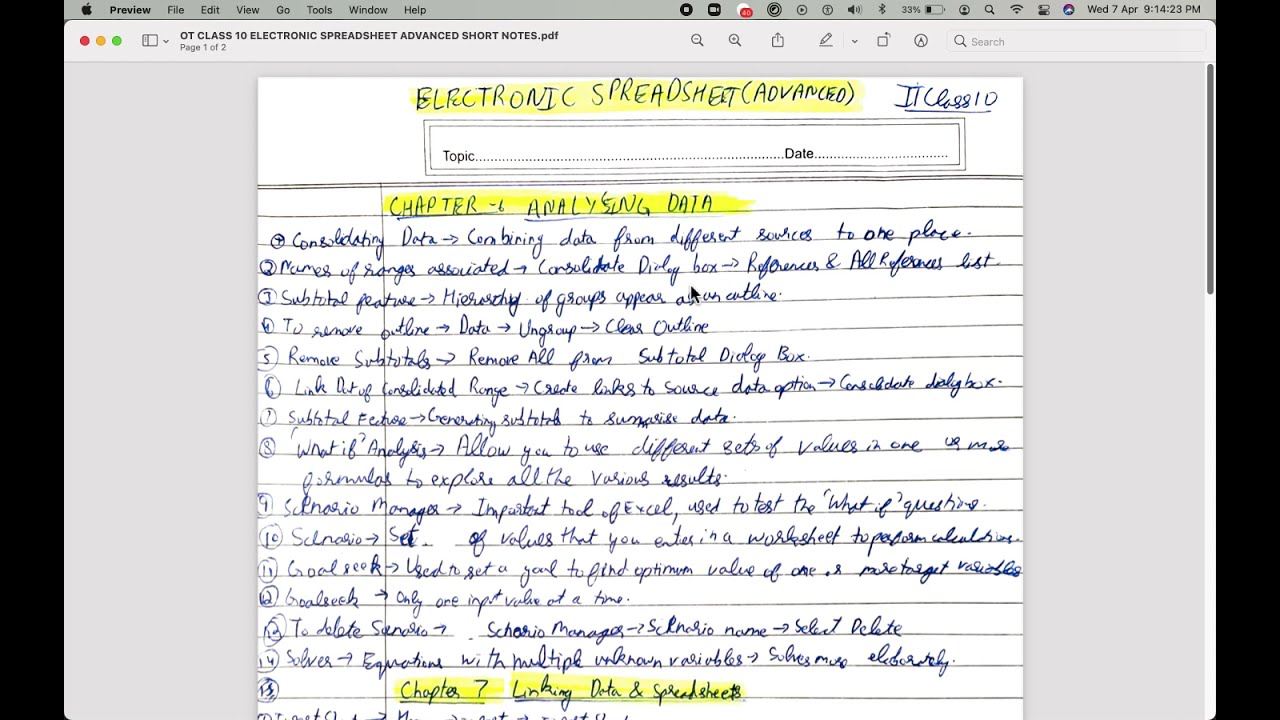 Preview File Edit View Go Tools Window Help 40 33% Wed 7 Apr 9:14:23 PM
OT CLASS 10 ELECTRONIC SPREADSHEET ADVANCED SHORT NOTES.pdf
Page 1 of 2
Search
ELECTRONIC SPREADSHEET (ADVANCED) IT Class 10
Topic.......... Date..........
CHAPTER - 6 ANALYSING DATA
① Consolidating Data → Combining data from different sources to one place.
② Names of ranges associated → Consolidate Dialog box → References & All References list.
③ Subtotal feature → Hierarchy of groups appear as an outline.
④ To remove outline → Data → Ungroup → Clear Outline
⑤ Remove Subtotals → Remove All from Subtotal Dialog Box.
⑥ Link Out of Consolidated Range → Create links to source data option → Consolidate dialog box.
⑦ Subtotal Feature → Generating subtotals to summarise data.
⑧ 'What if' Analysis → Allow you to use different sets of values in one or more
formulas to explore all the various results.
⑨ Scenario Manager → Important tool of Excel, used to test the 'What if' questions.
⑩ Scenario → Set of values that you enter in a worksheet to perform calculations.
⑪ Goal seek → Used to set a goal to find optimum value of one or more target variables
⑫ Goalseek → Only one input value at a time.
⑬ To delete Scenario → Scenario Manager → Scenario name → Select Delete
⑭ Solver → Equations with multiple unknown variables → Solves more elaborately.
⑮ Chapter 7 Linking Data & Spreadsheets